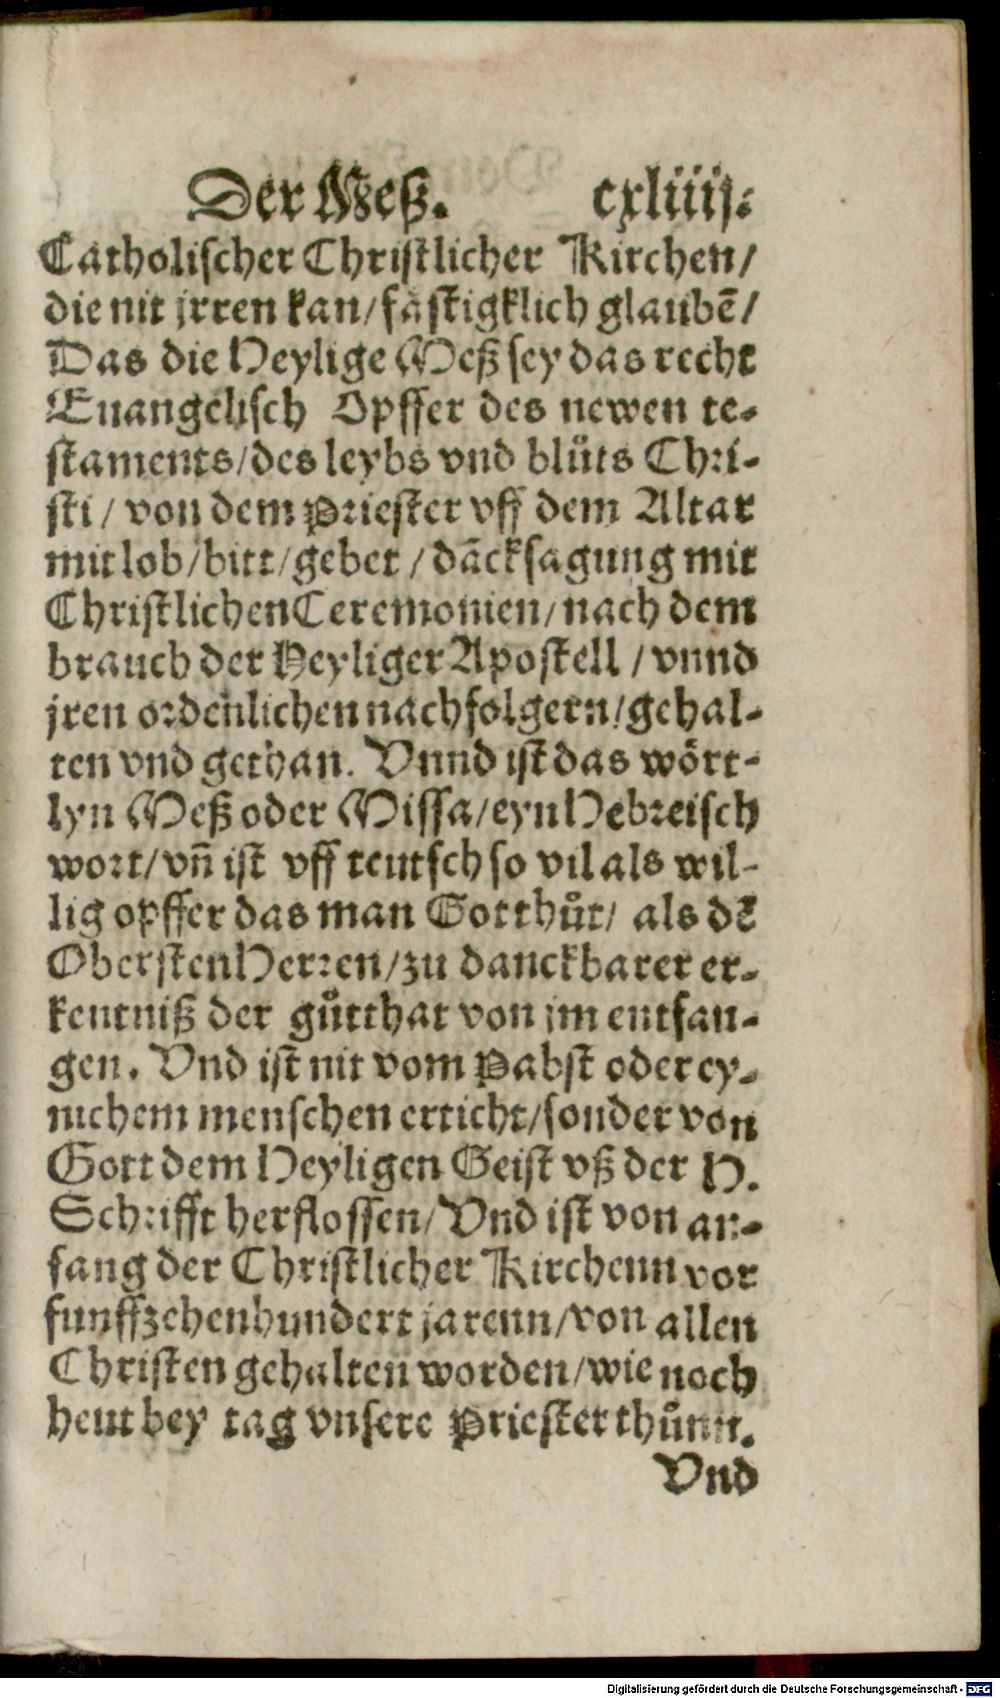 Der Meß. cxliiij.
Catholischer Christlicher Kirchen/
die nit jrren kan/ fästigklich glaubē/
Das die Heylige Meß sey das recht
Euangelisch Opffer des newen te-
staments/ des leybs vnd blůts Chri-
sti/ von dem Priester vff dem Altar
mit lob/ bitt/ gebet/ dācksagung mit
Christlichen Ceremonien/ nach dem
brauch der Heyliger Apostell/ vnnd
jren ordenlichen nachfolgern/ gehal-
ten vnd gethan. Vnnd ist das wört-
lyn Meß oder Missa/ eyn Hebreisch
wort/ vn̄ ist vff teutsch so vil als wil-
lig opffer das man Gott thůt/ als dē
Obersten Herren/ zu danckbarer er-
kentniß der gůtthat von jm entfan-
gen. Vnd ist nit vom Pabst oder ey-
nichem menschen erticht/ sonder von
Gott dem Heyligen Geist vß der H.
Schrifft herflossen/ Vnd ist von an-
fang der Christlicher Kirchenn vor
funffzehenhundert jarenn/ von allen
Christen gehalten worden/ wie noch
heut bey tag vnsere Priester thůnn.
Vnd
Digitalisierung gefördert durch die Deutsche Forschungsgemeinschaft - DFG